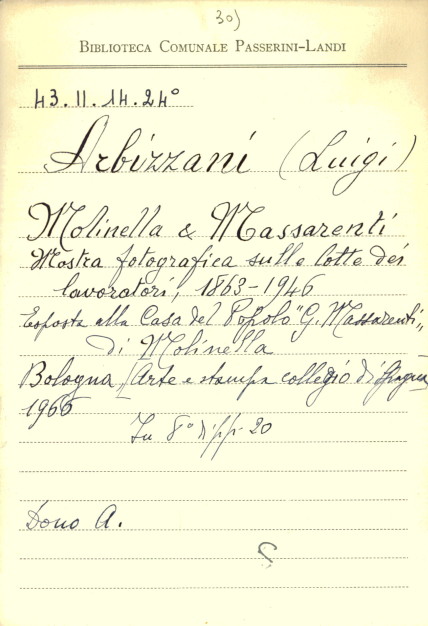 30)
BIBLIOTECA COMUNALE PASSERINI-LANDI
43.II.14.24°
Arbizzani (Luigi)
Molinella & Massarenti
Mostra fotografica sulle lotte dei
lavoratori, 1863-1946
Esposta alla Casa del Popolo "G. Massarenti"
di Molinella
Bologna, Arte e stampa collegio di
1966
In 8° di pp. 20
Dono A.